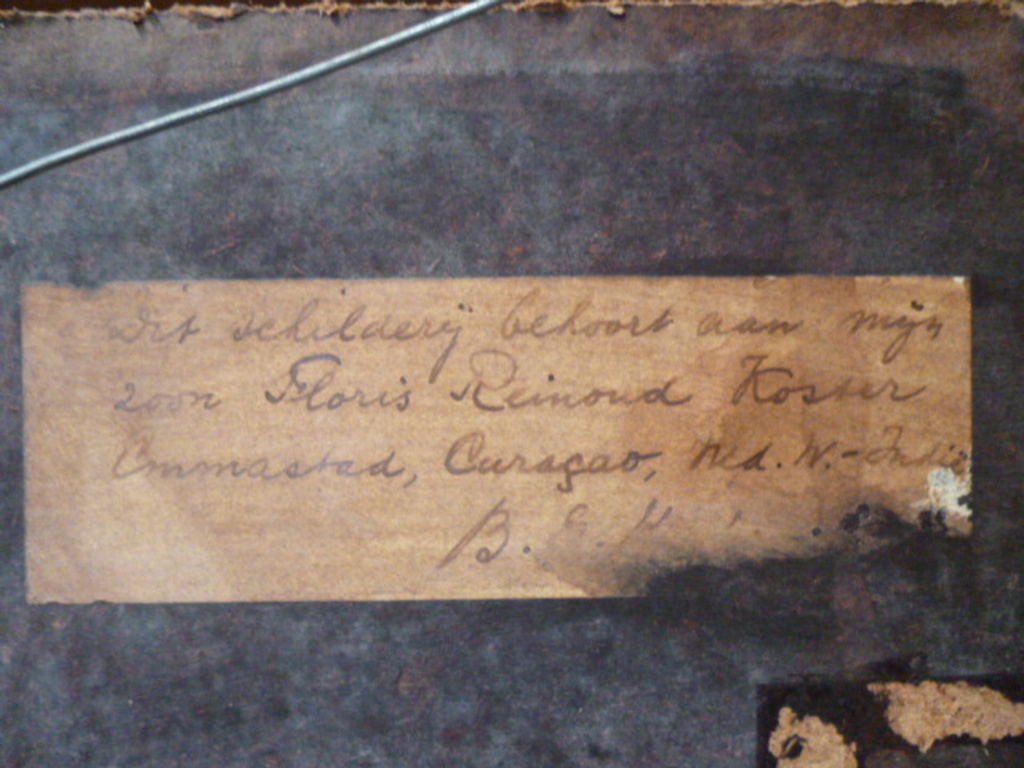 Dit schilderij behoort aan mijn
zoon Floris Reinoud Koster
Emmastad, Curaçao, Ned. W.-Indië
B.